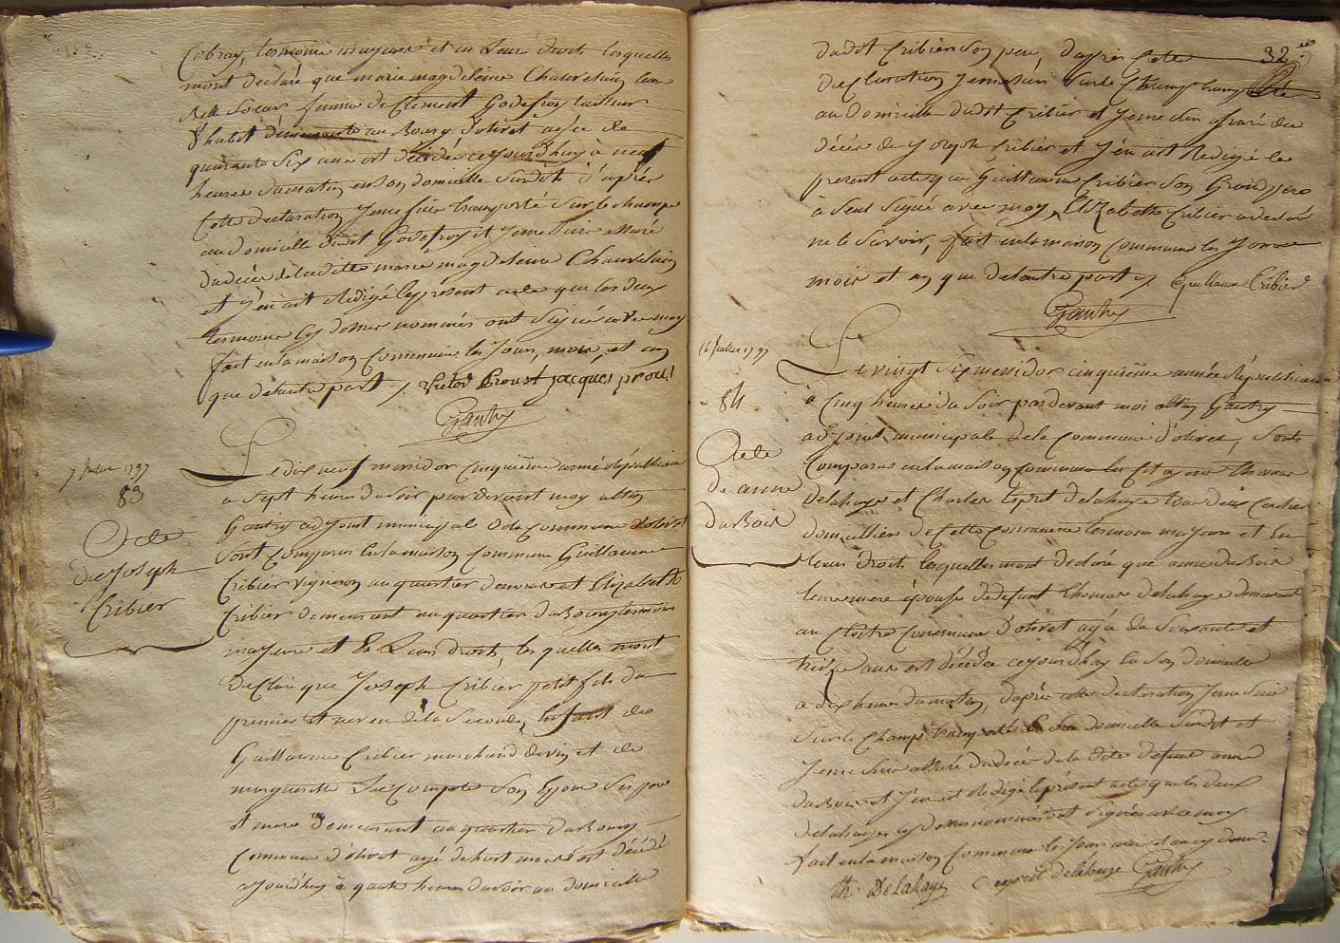 témoins majeurs et en Leur droit lesquelles
mont declaré que marie magdeleine Chauvelein
femme de Clement Godefroy
au Bourg d'olivet agée de
quarante six ans est décédée cejourd'huy à neuf
heures du matin en son domicile susdit d'après
Cette declaration Jeme suis transporté sur le champ
au domicile dudit Godefroy et Jeme suis assuré
du décès de laditte marie magdeleine Chauvelein
et J'en ait Redigé le present acte que les deux
temoins cy dessus nommés ont signé avec moy
fait en la maison Commune les Jour, mois, et an
que d'autre part / Victor Proust jacques proust
Gautry
7 juillet 1797
83
Acte
de Joseph
Cribier
Le dix neuf messidor cinquième année Républicaine
a sept heures du soir pardevant moy
Gautry adjoint municipal de la Commune d'olivet
sont comparus en la maison Commune Guillaume
Cribier vigneron au quartier et Elizabeth
Cribier demeurant au quartier du Bourg temoins
majeurs et de Leurs droits, les quelles mont
declaré que Joseph Cribier petit fils du
premier et neveu de la seconde, de
Guillaume Cribier marchand de vin et de
marguerite LeCompte son épouse ses père
et mere demeurant au quartier du Bourg
Commune d'olivet agé de huit mois est décédé
cejourd'huy à quatre heures du soir au domicile
32
dudit Cribier son pere, d'après cette
declaration Jeme suis sur le champ transporté
au domicile dudit Cribier et Jeme suis assuré du
décès de Joseph Cribier et J'en ait Redigé le
present acte que Guillaume Cribier son Grand pere
à seul signé avec moy, Elizabette Cribier a declaré
ne le savoir, fait en la maison Commune les Jour
mois et an que d'autre part / Guillaume Cribier
Gautry
16 juillet 1797
84
Acte
de anne
duBois
Le vingt six messidor cinquième année Républicaine
à cinq heures du soir pardevant moi Gautry
adjoint municipale de la Commune d'olivet, sont
comparus en la maison Commune les citoyens Thomas
Delahaye et Charles Esprit Delahaye tous deux
domicilliés de cette Commune temoins majeurs et en
leurs droits lesquelles mont declaré que anne duBois
leur mere épouse de defunt Thomas Delahaye demeurant
au Cloitre Commune d'olivet agée de soixante et
treize ans est décédée cejourd'huy en son domicille
a dix heures du matin, d'après cette declaration Jeme suis
sur le champ transporté en son domicille susdit et
Jeme suis assuré du décès de la dite defunte anne
duBois et J'en ait Redigé le présent acte que les deux
delahayes cy dessus nommés ont signés avec moy
Fait en la maison Commune les jour mois et an cy dessus
Th. DeLahaye esprit delahaye Gautry